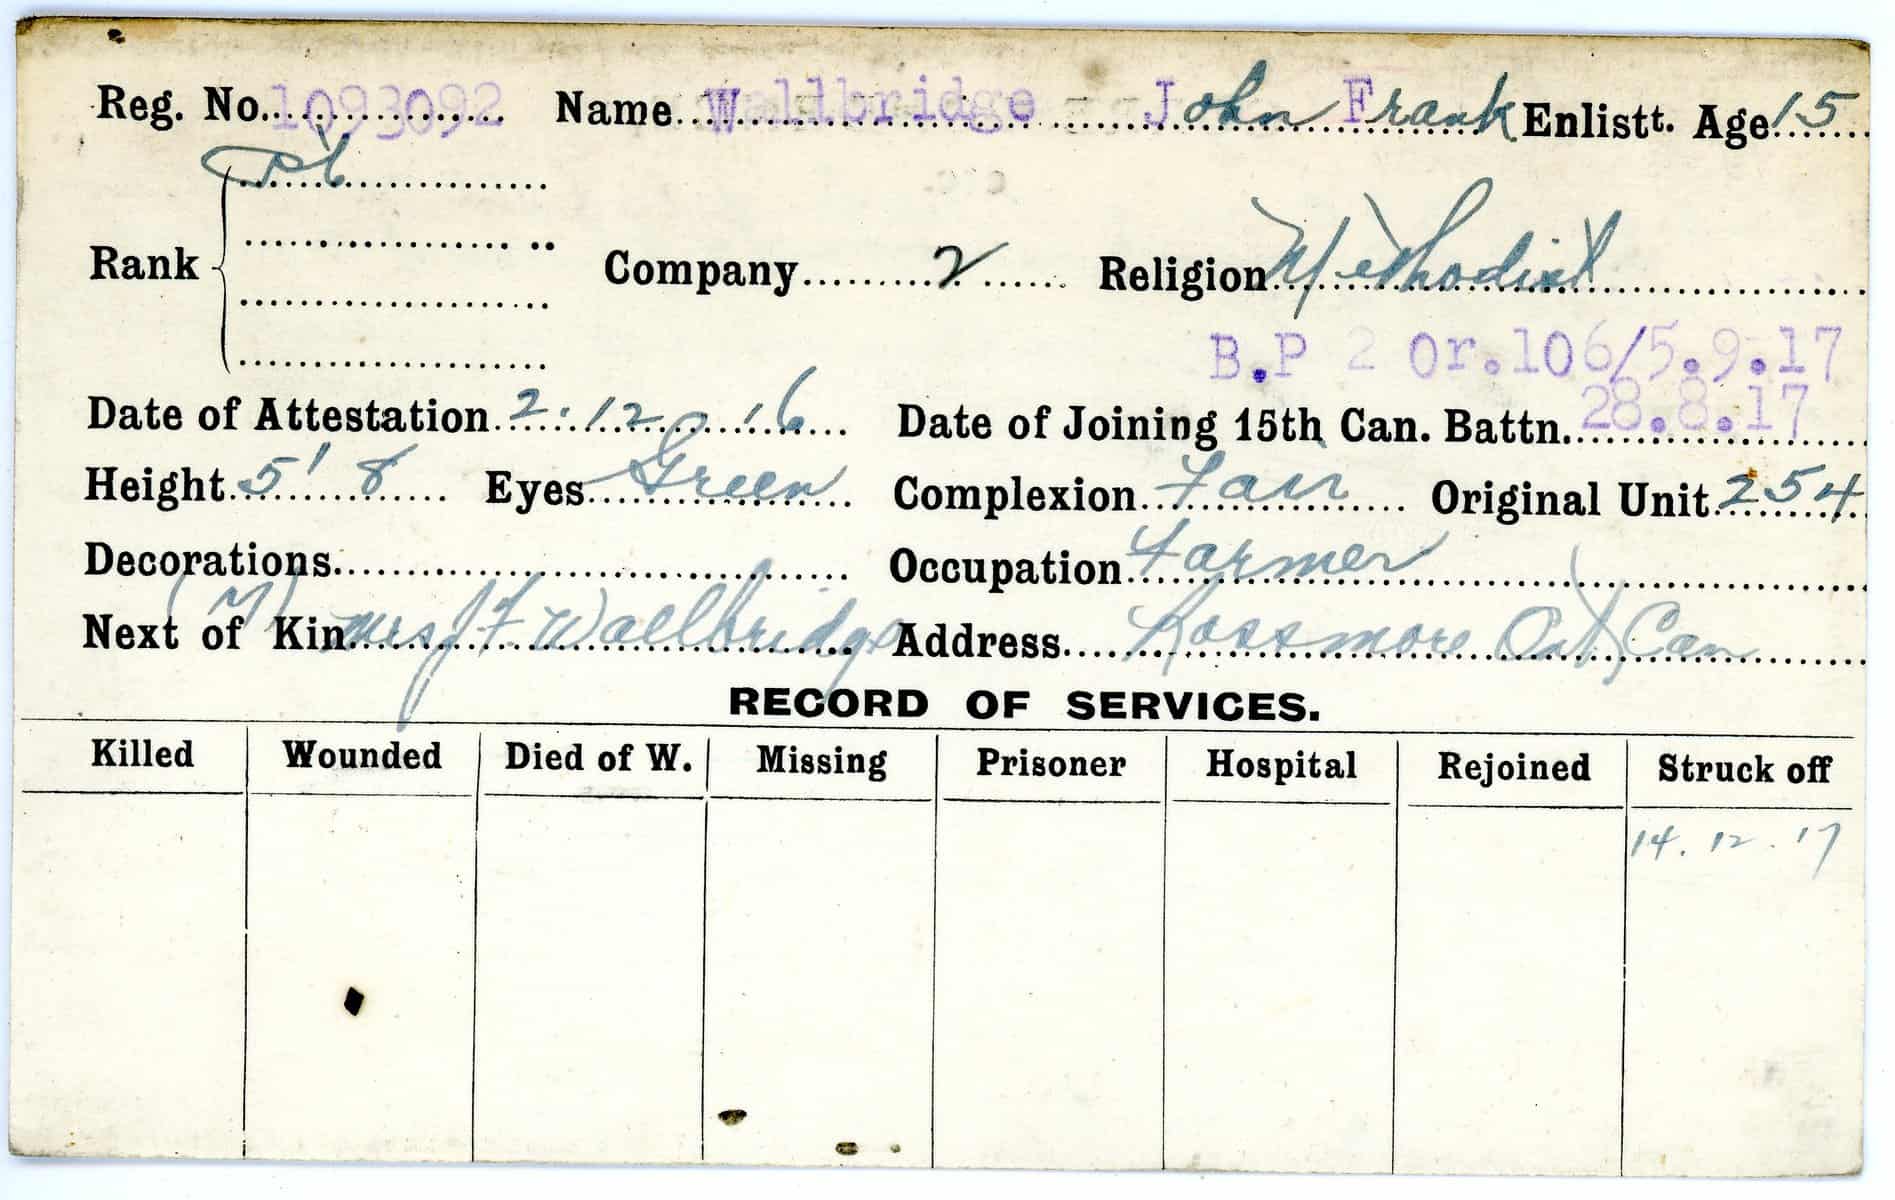 Reg. No. 1093092 Name Wallbridge -- John Frank Enlistt. Age 15
Pte
Rank Company 2 Religion Methodist
B.P 2 Or.106/5.9.17
Date of Attestation 2.12.16 Date of Joining 15th Can. Battn. 28.8.17
Height 5' 8 Eyes Green Complexion Fair Original Unit 254
Decorations Occupation Farmer
Next of Kin (M) Mrs J F Wallbridge Address Rossmore Ont Can
RECORD OF SERVICES.
Killed Wounded Died of W. Missing Prisoner Hospital Rejoined Struck off
14.12.17